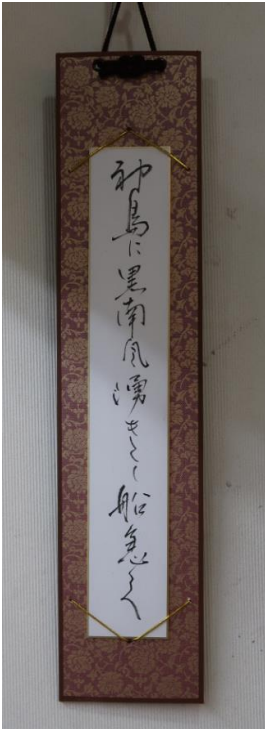 神島に黒南風湧きて船急ぐ